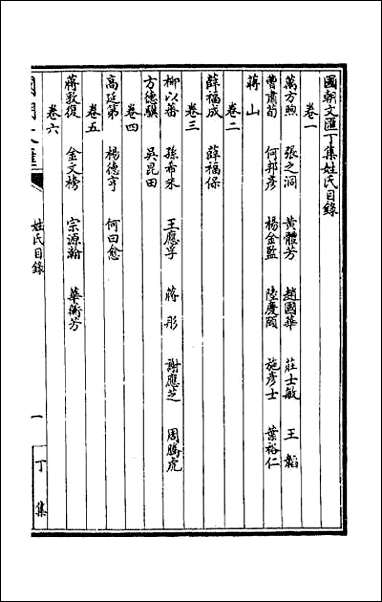 國朝文匯丁集姓氏目錄
卷一
萬方煦 張之洞 黃體芳 趙國華 莊士敏 王韜
曹肅荀 何邦彥 楊金監 陸慶頤 施彥士 葉裕仁
蔣山
卷二
薛福成 薛福保
卷三
柳以蕃 孫希朱 王應孚 蔣彤 謝應芝 周騰虎
方德驥 吳昆田
卷四
高延第 楊德亨 何曰愈
卷五
蔣敦復 金文榜 宗源瀚 華蘅芳
卷六
國朝文匯
姓氏目錄
一
丁集